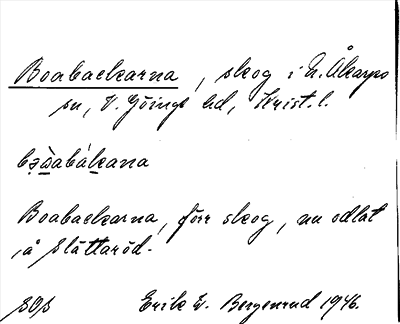 Boabackarna, skog i N. Åkarps
sn, V. Göinge hd, Krist. l.
bǝẁabákana
Boabackarna, förr skog, nu odlat
, å Slättaröd.
Erik W. Bergenrud 1946.